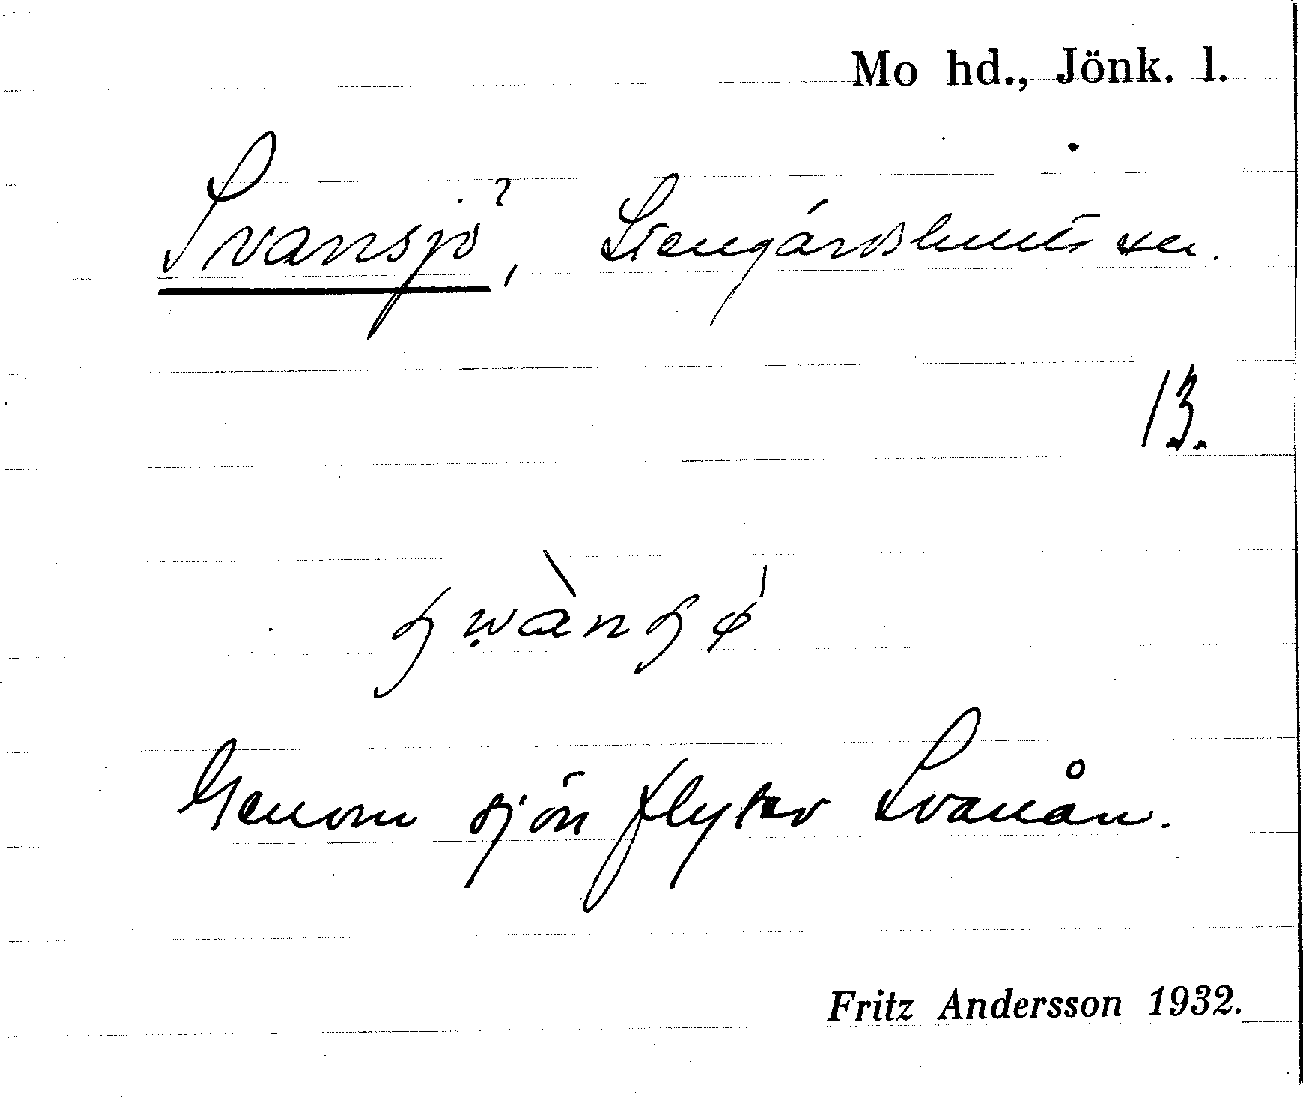 Mo hd., Jönk. l.
Svansjö, Stengårdshults sn.
13.
Genom sjön flyter Svanån.
Fritz Andersson 1932.